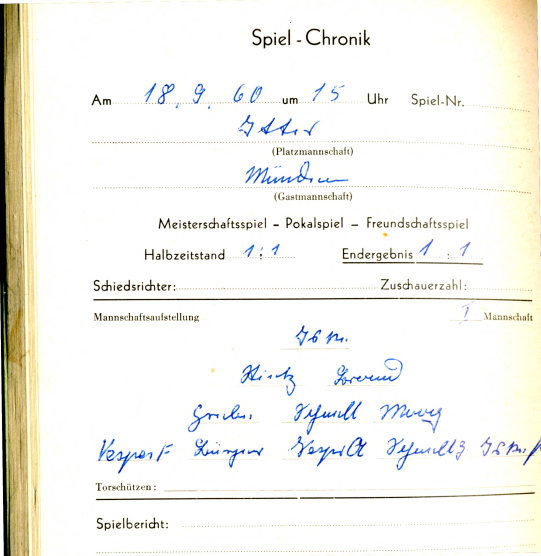 Spiel - Chronik
Am 18. 9. 60 um 15 Uhr Spiel-Nr.
Itter
(Platzmannschaft)
(Gastmannschaft)
Meisterschaftsspiel – Pokalspiel – Freundschaftsspiel
Halbzeitstand 1:1 Endergebnis 1:1
Schiedsrichter: Zuschauerzahl:
Mannschaftsaufstellung I Mannschaft
Hintz
Schmidt
Vesper F Vesper A Schmidt
Torschützen:
Spielbericht: